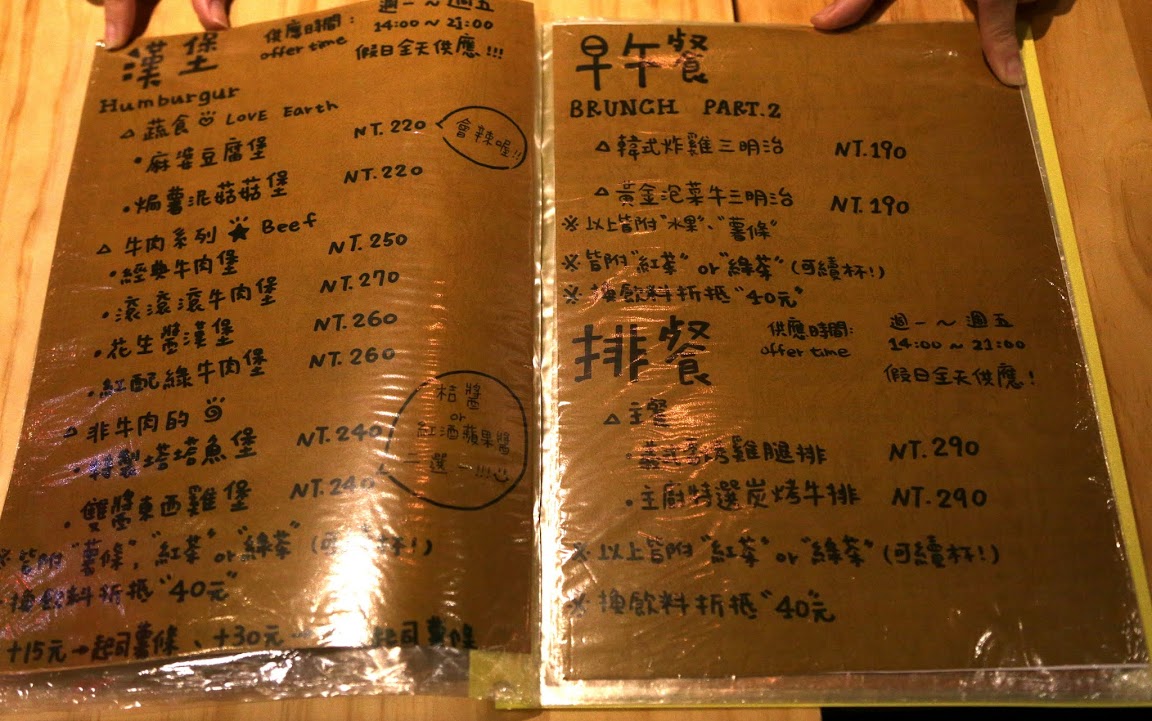 漢堡 供應時間: 週一～週五
offer time 14:00～21:00
假日全天供應!!!
Humburgur
△ 蔬食 LOVE Earth
•麻婆豆腐堡 NT.220
會辣喔!!
•焗薯泥菇菇堡 NT.220
△ 牛肉系列 ★ Beef
•經典牛肉堡 NT.250
•滾滾滾牛肉堡 NT.270
•花生醬漢堡 NT.260
•紅配綠牛肉堡 NT.260
△ 非牛肉的
•特製塔塔魚堡 NT.240
•雙醬東西雞堡 NT.240
桔醬
or
紅酒蘋果醬
二選一!!!
※皆附"薯條","紅茶"or"綠茶"(可續杯!)
※換飲料折抵"40元"
+15元→起司薯條、+30元→ 起司薯條
早午餐
BRUNCH PART.2
△ 韓式炸雞三明治 NT.190
△ 黃金泡菜牛三明治 NT.190
※以上皆附"水果"、"薯條"
※皆附"紅茶"or"綠茶"(可續杯!)
※換飲料折抵"40元"
排餐 供應時間: 週一～週五
offer time 14:00～21:00
假日全天供應!
△ 主餐
•義式 烤雞腿排 NT.290
•主廚特選炭烤牛排 NT.290
※以上皆附"紅茶"or"綠茶"(可續杯!)
※換飲料折抵"40元"